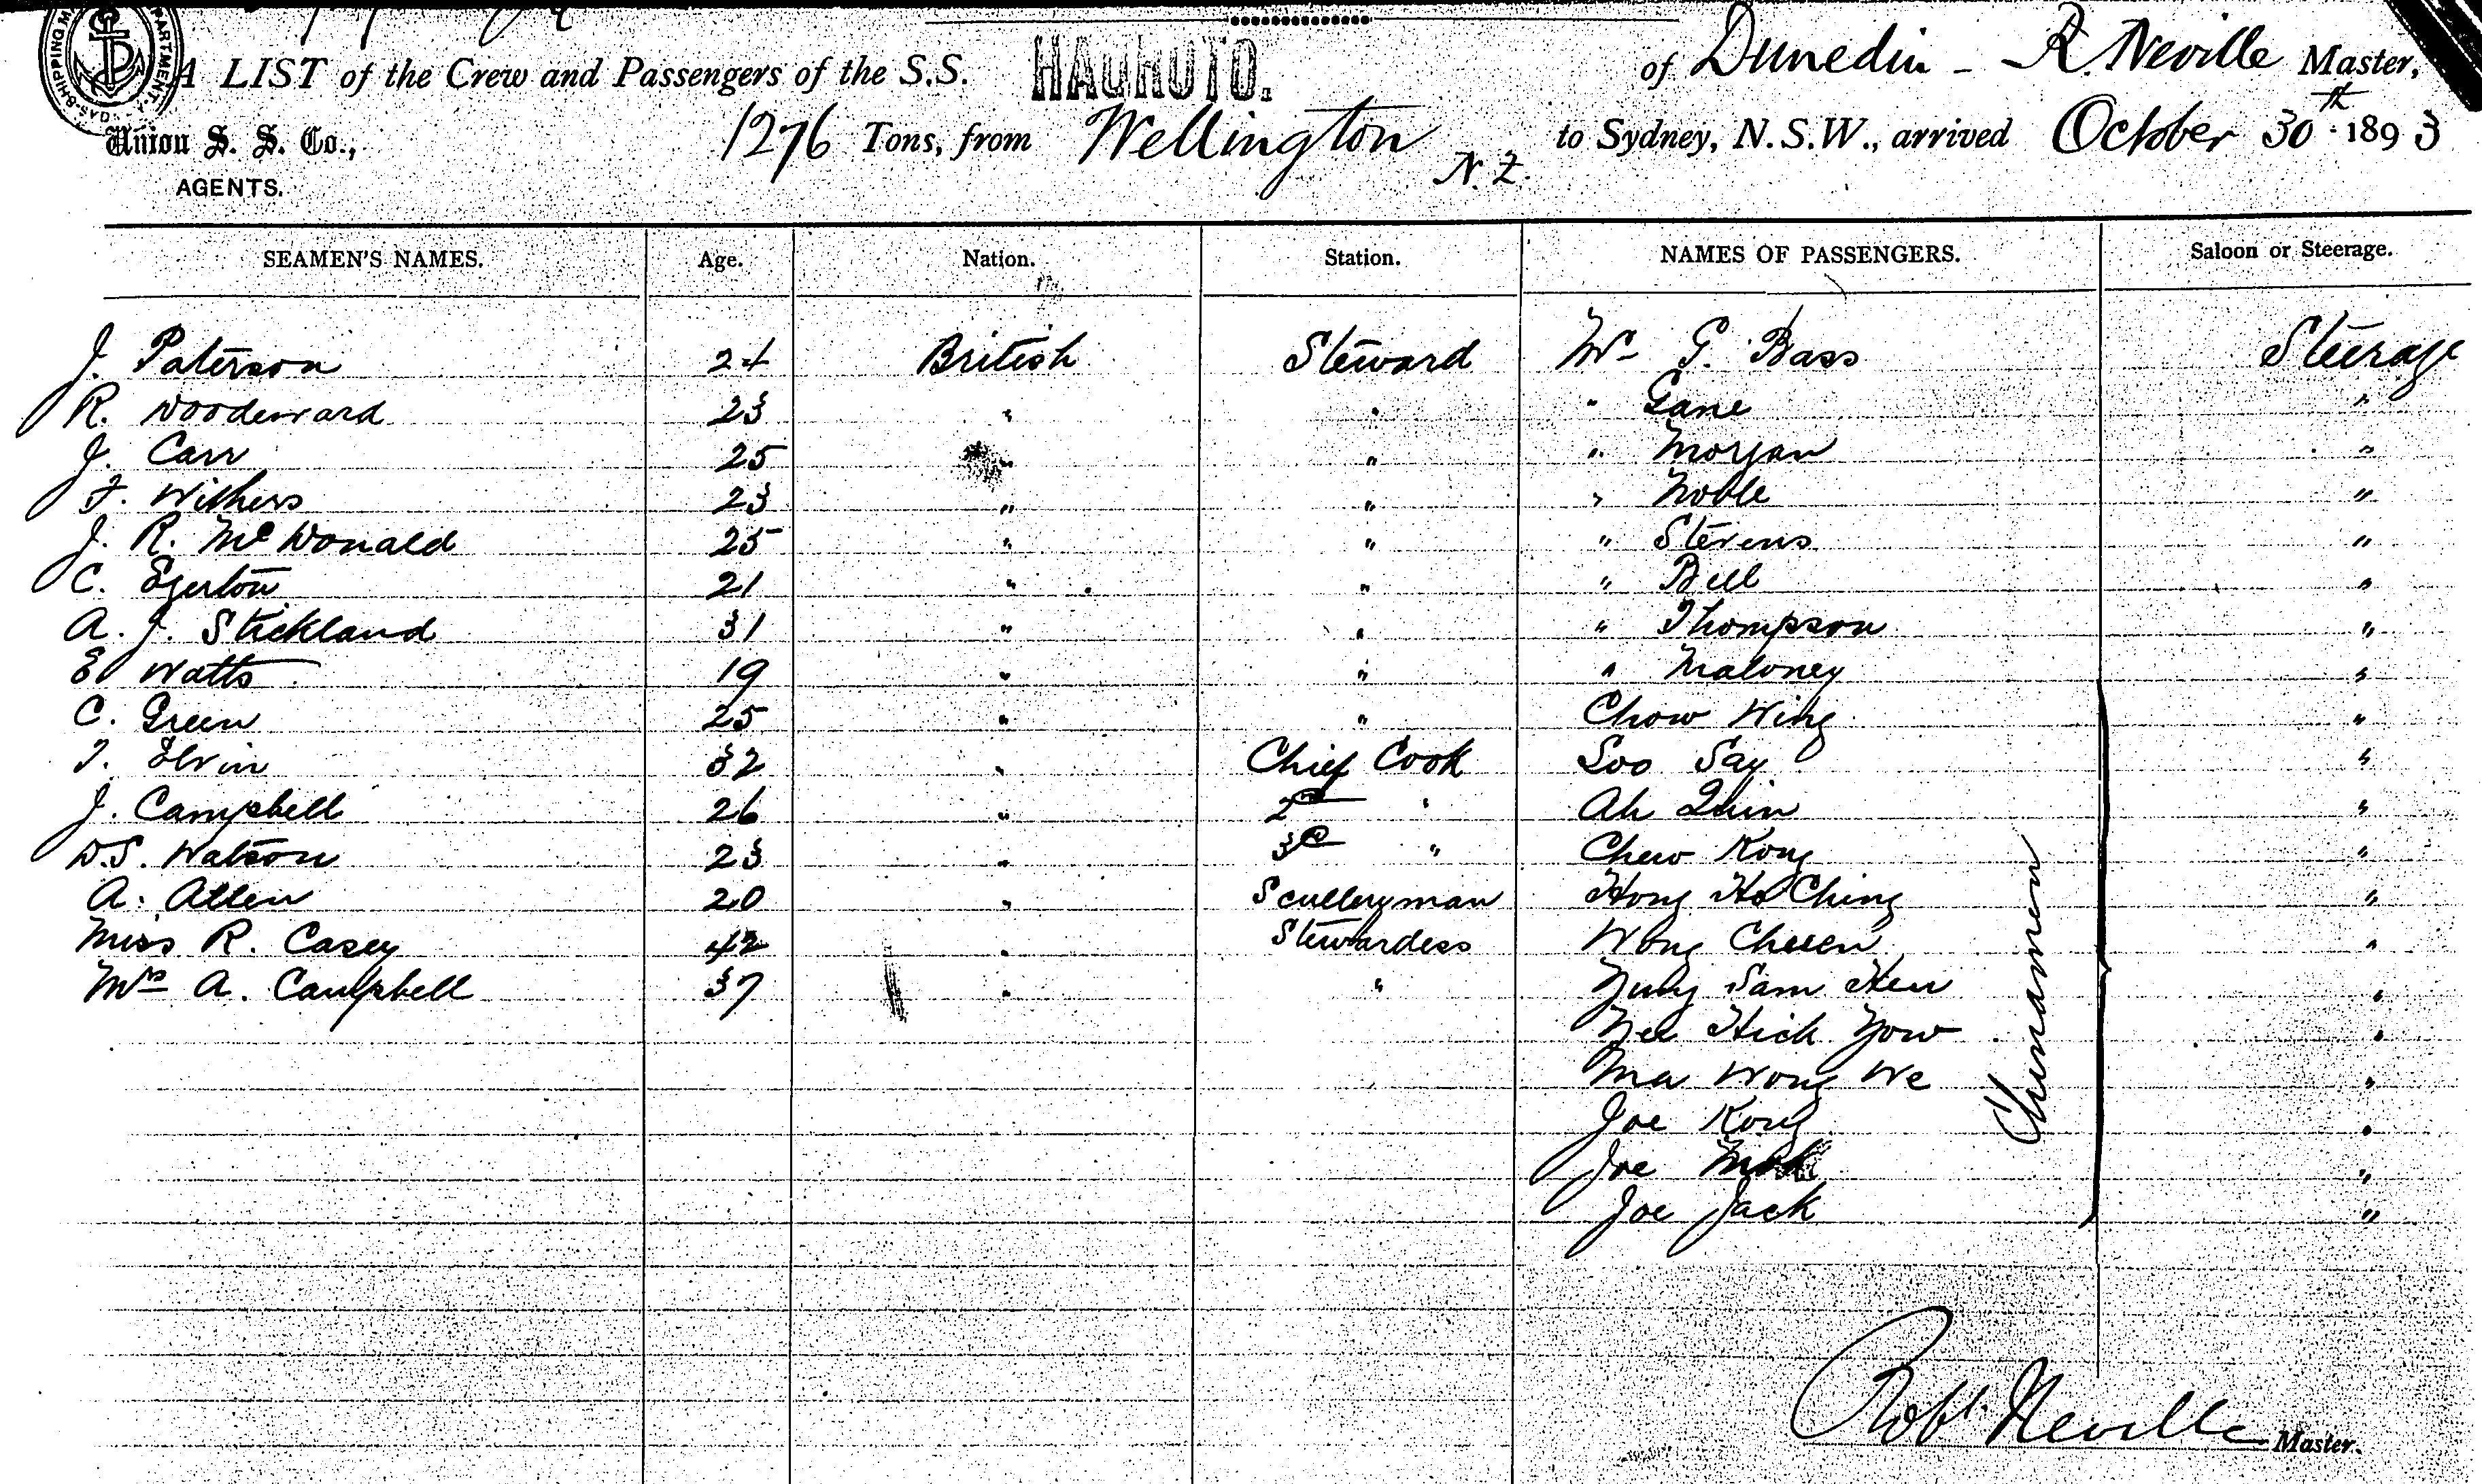 A LIST of the Crew and Passengers of the S.S. HAUROTO. of Dunedin - R. Neville Master,
Union S. S. Co., 1276 Tons, from Wellington N.Z. to Sydney, N.S.W., arrived October 30th 1893
AGENTS.
SEAMEN'S NAMES. Age. Nation. Station. NAMES OF PASSENGERS. Saloon or Steerage.
J. Paterson 24 British Steward Mr G. Bass Steerage
R. Woodward 23 " " " Gane "
J. Carr 25 " " " Morgan "
F. Withers 23 " " " Noble "
J. R. McDonald 25 " " " Stevens "
C. Egerton 21 " " " Bell "
A. J. Stickland 31 " " " Thompson "
E Watts 19 " " " Maloney "
C. Green 25 " " Chow Wing "
T. Elvin 32 " Chief Cook Soo Say "
J. Campbell 26 " 2nd " Ah Quin "
D.S. Watson 23 " 3rd " Chew Kong "
A. Allen 20 " Sculleryman Hong Ho Ching "
Miss R. Casey 42 " Stewardess Wong Cheen "
Mrs A. Campbell 37 " " Yung Sam Hen "
Yee Hick Yow "
Ma Wong We "
Joe Kong "
Joe "
Joe Jack "
Chinamen
Robt. Neville Master.